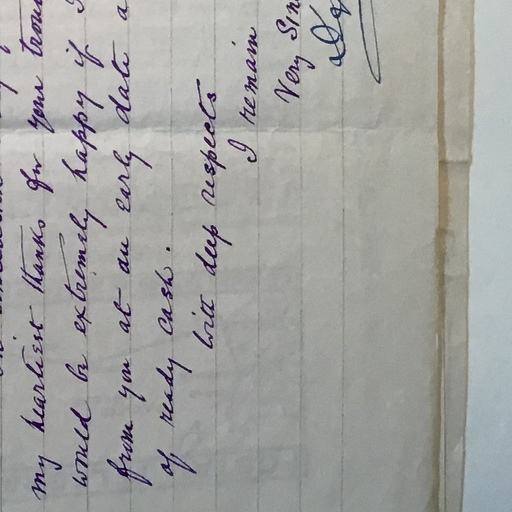 my heartiest thanks for your
would be extremely happy if I
from you at an early date a
of ready cash.
With deep respects
I remain
Very